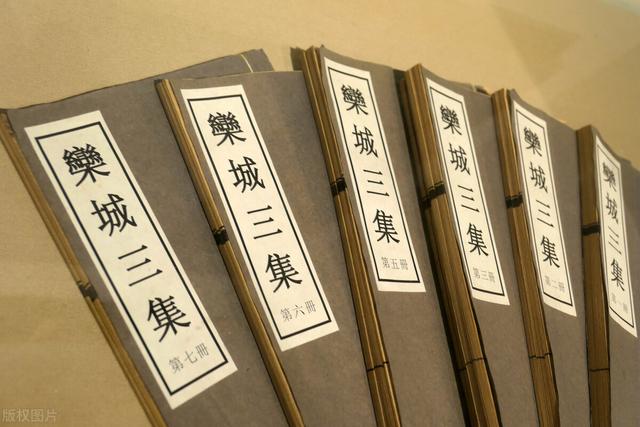 欒城三集
第七冊
欒城三集
第六冊
欒城三集
第五冊
欒城三集
第三冊
欒城三集
第二冊
欒城三集
第一冊
版权图片